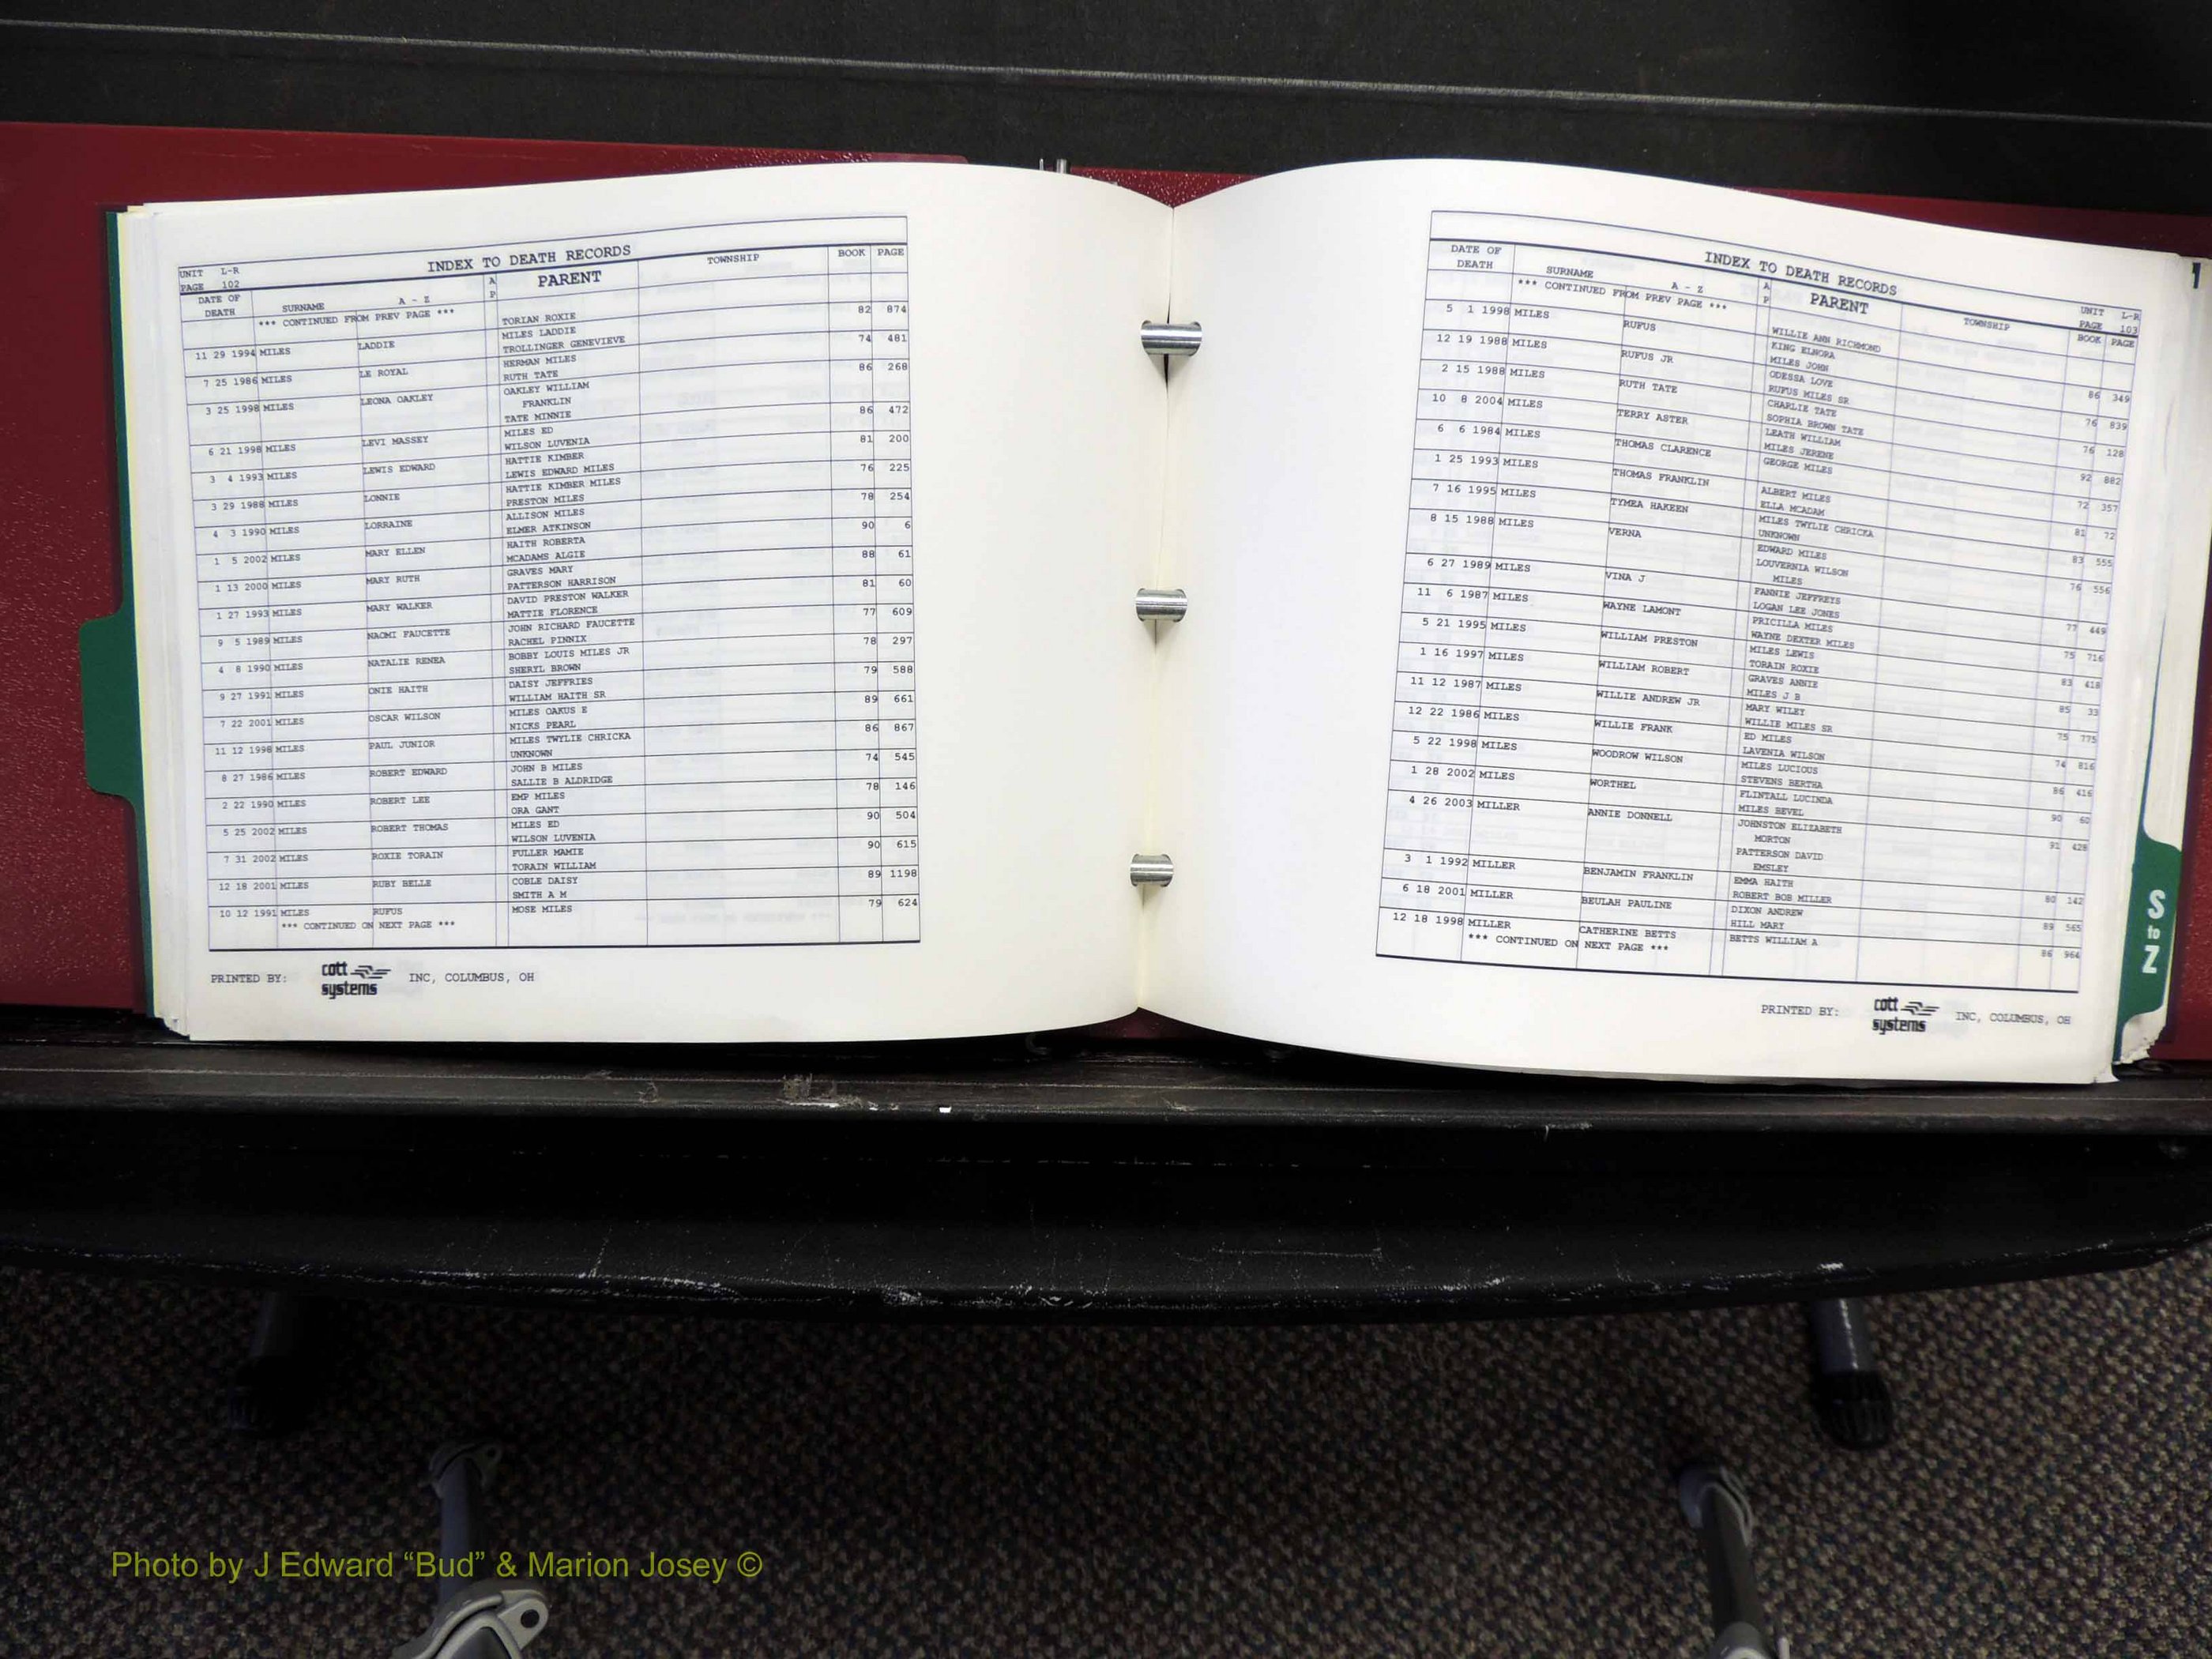 UNIT L-R
PAGE 102
INDEX TO DEATH RECORDS
DATE OF DEATH SURNAME A - Z A P PARENT TOWNSHIP BOOK PAGE
*** CONTINUED FROM PREV PAGE *** TORIAN ROXIE 82 874
11 29 1994 MILES LADDIE MILES LADDIE
TROLLINGER GENEVIEVE 74 481
7 25 1986 MILES LE ROYAL HERMAN MILES
RUTH TATE 86 268
3 25 1998 MILES LEONA OAKLEY OAKLEY WILLIAM
FRANKLIN
TATE MINNIE 86 472
6 21 1998 MILES LEVI MASSEY MILES ED
WILSON LUVENIA 81 200
3 4 1993 MILES LEWIS EDWARD HATTIE KIMBER
LEWIS EDWARD MILES 76 225
3 29 1988 MILES LONNIE HATTIE KIMBER MILES
PRESTON MILES 78 254
4 3 1990 MILES LORRAINE ALLISON MILES
ELMER ATKINSON 90 6
1 5 2002 MILES MARY ELLEN HAITH ROBERTA
MCADAMS ALGIE 88 61
1 13 2000 MILES MARY RUTH GRAVES MARY
PATTERSON HARRISON 81 60
1 27 1993 MILES MARY WALKER DAVID PRESTON WALKER
MATTIE FLORENCE 77 609
9 5 1989 MILES NAOMI FAUCETTE JOHN RICHARD FAUCETTE
RACHEL PINNIX 78 297
4 8 1990 MILES NATALIE RENEA BOBBY LOUIS MILES JR
SHERYL BROWN 79 588
9 27 1991 MILES ONIE HAITH DAISY JEFFRIES
WILLIAM HAITH SR 89 661
7 22 2001 MILES OSCAR WILSON MILES OAKUS E
NICKS PEARL 86 867
11 12 1998 MILES PAUL JUNIOR MILES TWYLIE CHRICKA
UNKNOWN 74 545
8 27 1986 MILES ROBERT EDWARD JOHN B MILES
SALLIE B ALDRIDGE 78 146
2 22 1990 MILES ROBERT LEE EMP MILES
ORA GANT 90 504
5 25 2002 MILES ROBERT THOMAS MILES ED
WILSON LUVENIA 90 615
7 31 2002 MILES ROXIE TORAIN FULLER MAMIE
TORAIN WILLIAM 89 1198
12 18 2001 MILES RUBY BELLE COBLE DAISY
SMITH A M 79 624
10 12 1991 MILES RUFUS MOSE MILES
*** CONTINUED ON NEXT PAGE ***
PRINTED BY: cott systems INC, COLUMBUS, OH
INDEX TO DEATH RECORDS
UNIT L-R
PAGE 103
DATE OF DEATH SURNAME A - Z A P PARENT TOWNSHIP BOOK PAGE
*** CONTINUED FROM PREV PAGE *** WILLIE ANN RICHMOND
5 1 1998 MILES RUFUS KING ELNORA
MILES JOHN 86 349
12 19 1988 MILES RUFUS JR ODESSA LOVE
RUFUS MILES SR 76 839
2 15 1988 MILES RUTH TATE CHARLIE TATE
SOPHIA BROWN TATE 76 128
10 8 2004 MILES TERRY ASTER LEATH WILLIAM
MILES JERENE 92 882
6 6 1984 MILES THOMAS CLARENCE GEORGE MILES
72 357
1 25 1993 MILES THOMAS FRANKLIN ALBERT MILES
ELLA MCADAM 81 72
7 16 1995 MILES TYMEA HAKEEN MILES TWYLIE CHRICKA
UNKNOWN 83 555
8 15 1988 MILES VERNA EDWARD MILES
LOUVERNIA WILSON
MILES 76 556
6 27 1989 MILES VINA J FANNIE JEFFREYS
LOGAN LEE JONES 77 449
11 6 1987 MILES WAYNE LAMONT PRICILLA MILES
WAYNE DEXTER MILES 75 716
5 21 1995 MILES WILLIAM PRESTON MILES LEWIS
TORAIN ROXIE 83 418
1 16 1997 MILES WILLIAM ROBERT GRAVES ANNIE
MILES J B 85 33
11 12 1987 MILES WILLIE ANDREW JR MARY WILEY
WILLIE MILES SR 75 775
12 22 1986 MILES WILLIE FRANK ED MILES
LAVENIA WILSON 74 816
5 22 1998 MILES WOODROW WILSON MILES LUCIOUS
STEVENS BERTHA 86 416
1 28 2002 MILES WORTHEL FLINTALL LUCINDA
MILES BEVEL 90 60
4 26 2003 MILLER ANNIE DONNELL JOHNSTON ELIZABETH
MORTON 91 428
PATTERSON DAVID
EMSLEY
3 1 1992 MILLER BENJAMIN FRANKLIN EMMA HAITH
ROBERT BOB MILLER 80 142
6 18 2001 MILLER BEULAH PAULINE DIXON ANDREW
HILL MARY 89 565
12 18 1998 MILLER CATHERINE BETTS BETTS WILLIAM A 86 964
*** CONTINUED ON NEXT PAGE ***
PRINTED BY: cott systems INC, COLUMBUS, OH
S
to
Z
Photo by J Edward “Bud” & Marion Josey ©